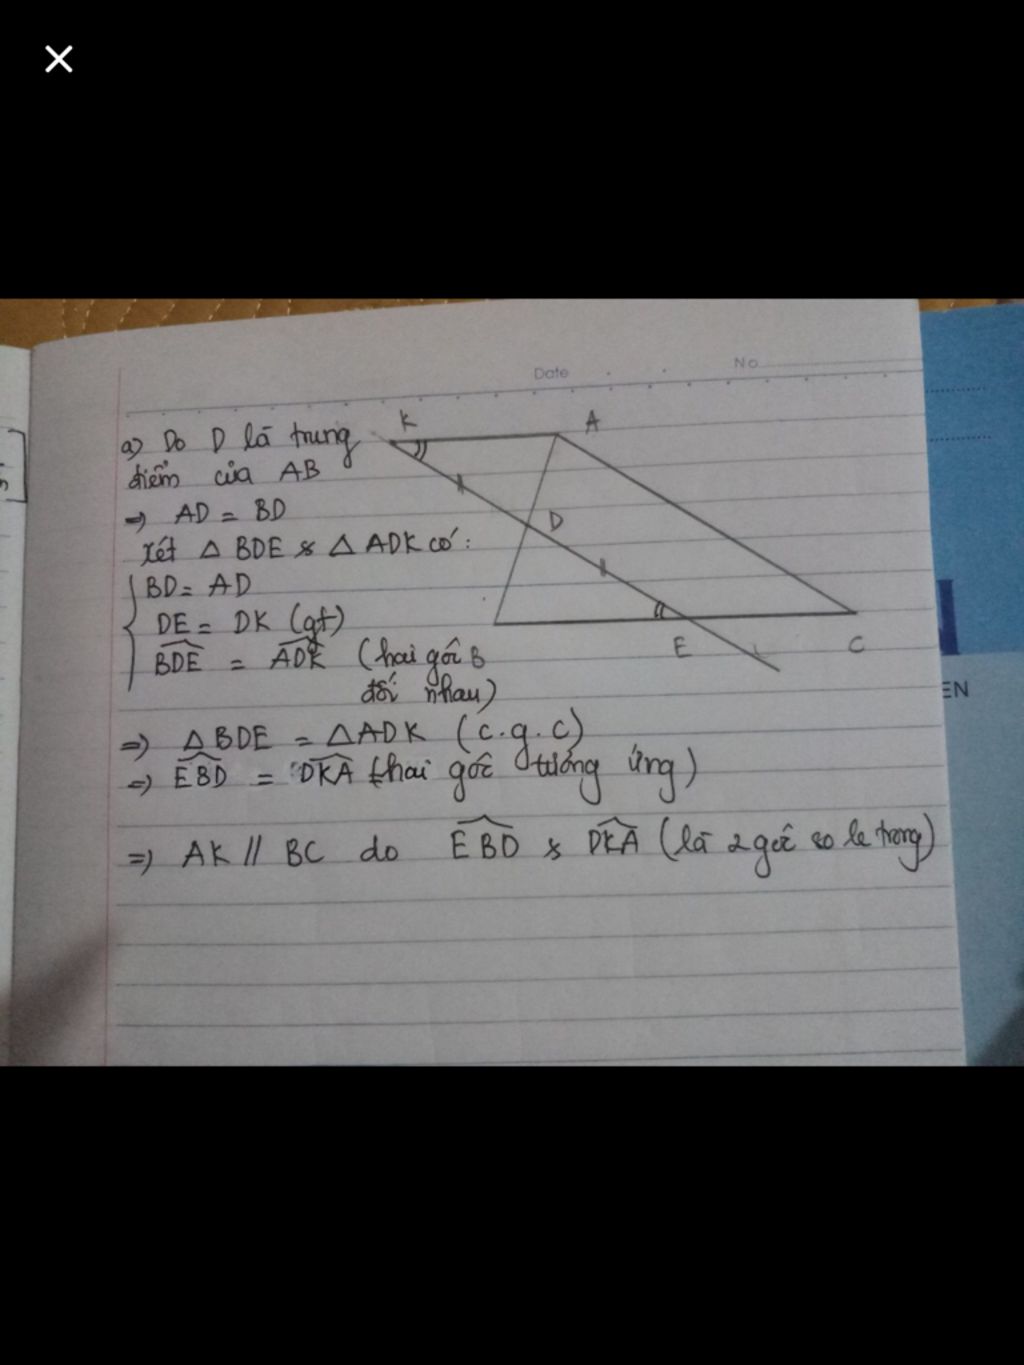 Date
No
a) Do D là trung
điểm của AB
=> AD = BD
Xét △ BDE & △ ADK có:
BD = AD
DE = DK (gt)
BDE = ADK (hai góc
đối nhau)
=> △BDE = △ADK (c.g.c)
=> EBD = DKA (hai góc tướng ứng)
=> AK // BC do EBD & DKA (là 2 góc so le trong)
K
A
D
B
E
C
EN